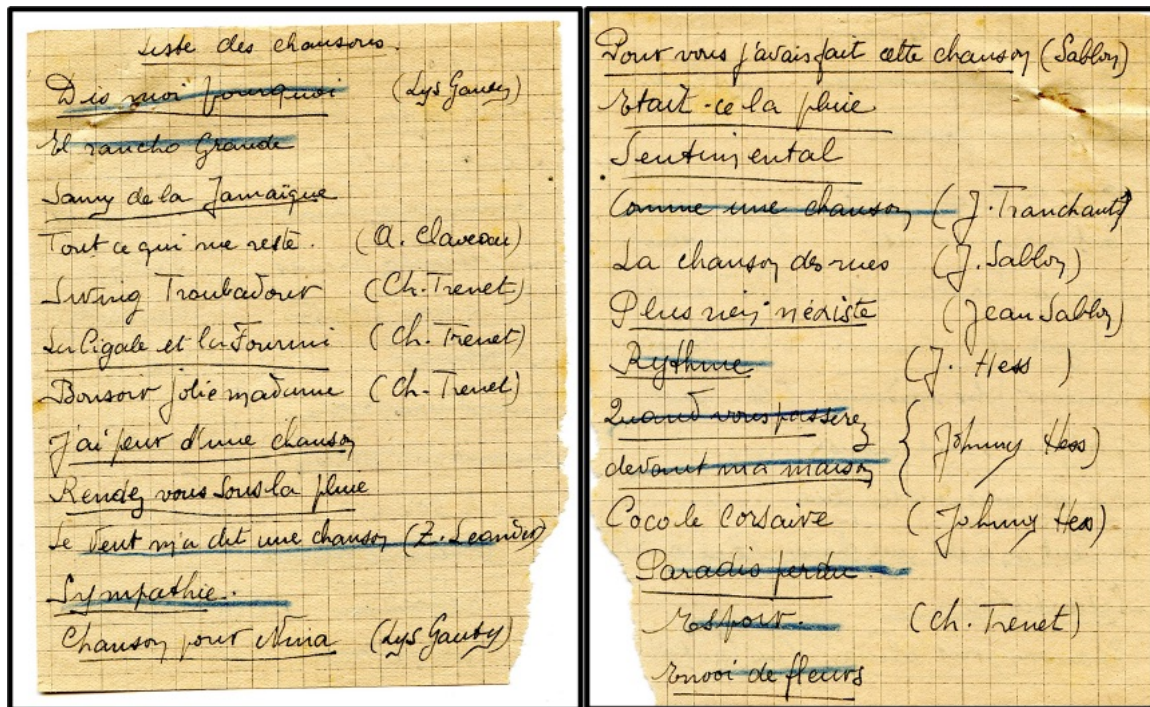 Liste des chansons.
Dis moi pourquoi (Lys Gauty)
El rancho Grande
Samy de la Jamaïque
Tout ce qui me reste. (A. Claveau)
Swing Troubadour (Ch. Trenet)
La Cigale et la Fourmi (Ch. Trenet)
Bonsoir jolie madame (Ch. Trenet)
J'ai peur d'une chanson
Rendez vous sous la pluie
Le Vent m'a dit une chanson (Z. Leander)
Sympathie.
Chanson pour Nina (Lys Gauty)
Pour vous j'avais fait cette chanson (Sablon)
Etait-ce la pluie
Sentimental
Comme une chanson (J. Tranchant)
La chanson des rues (J. Sablon)
Plus rien n'éxiste (Jean Sablon)
Rythme (J. Hess)
Quand vous passerez
devant ma maison { Johnny Hess)
Coco le Corsaire (Johnny Hess)
Paradis perdu.
Espoir. (Ch. Trenet)
Envoi de fleurs